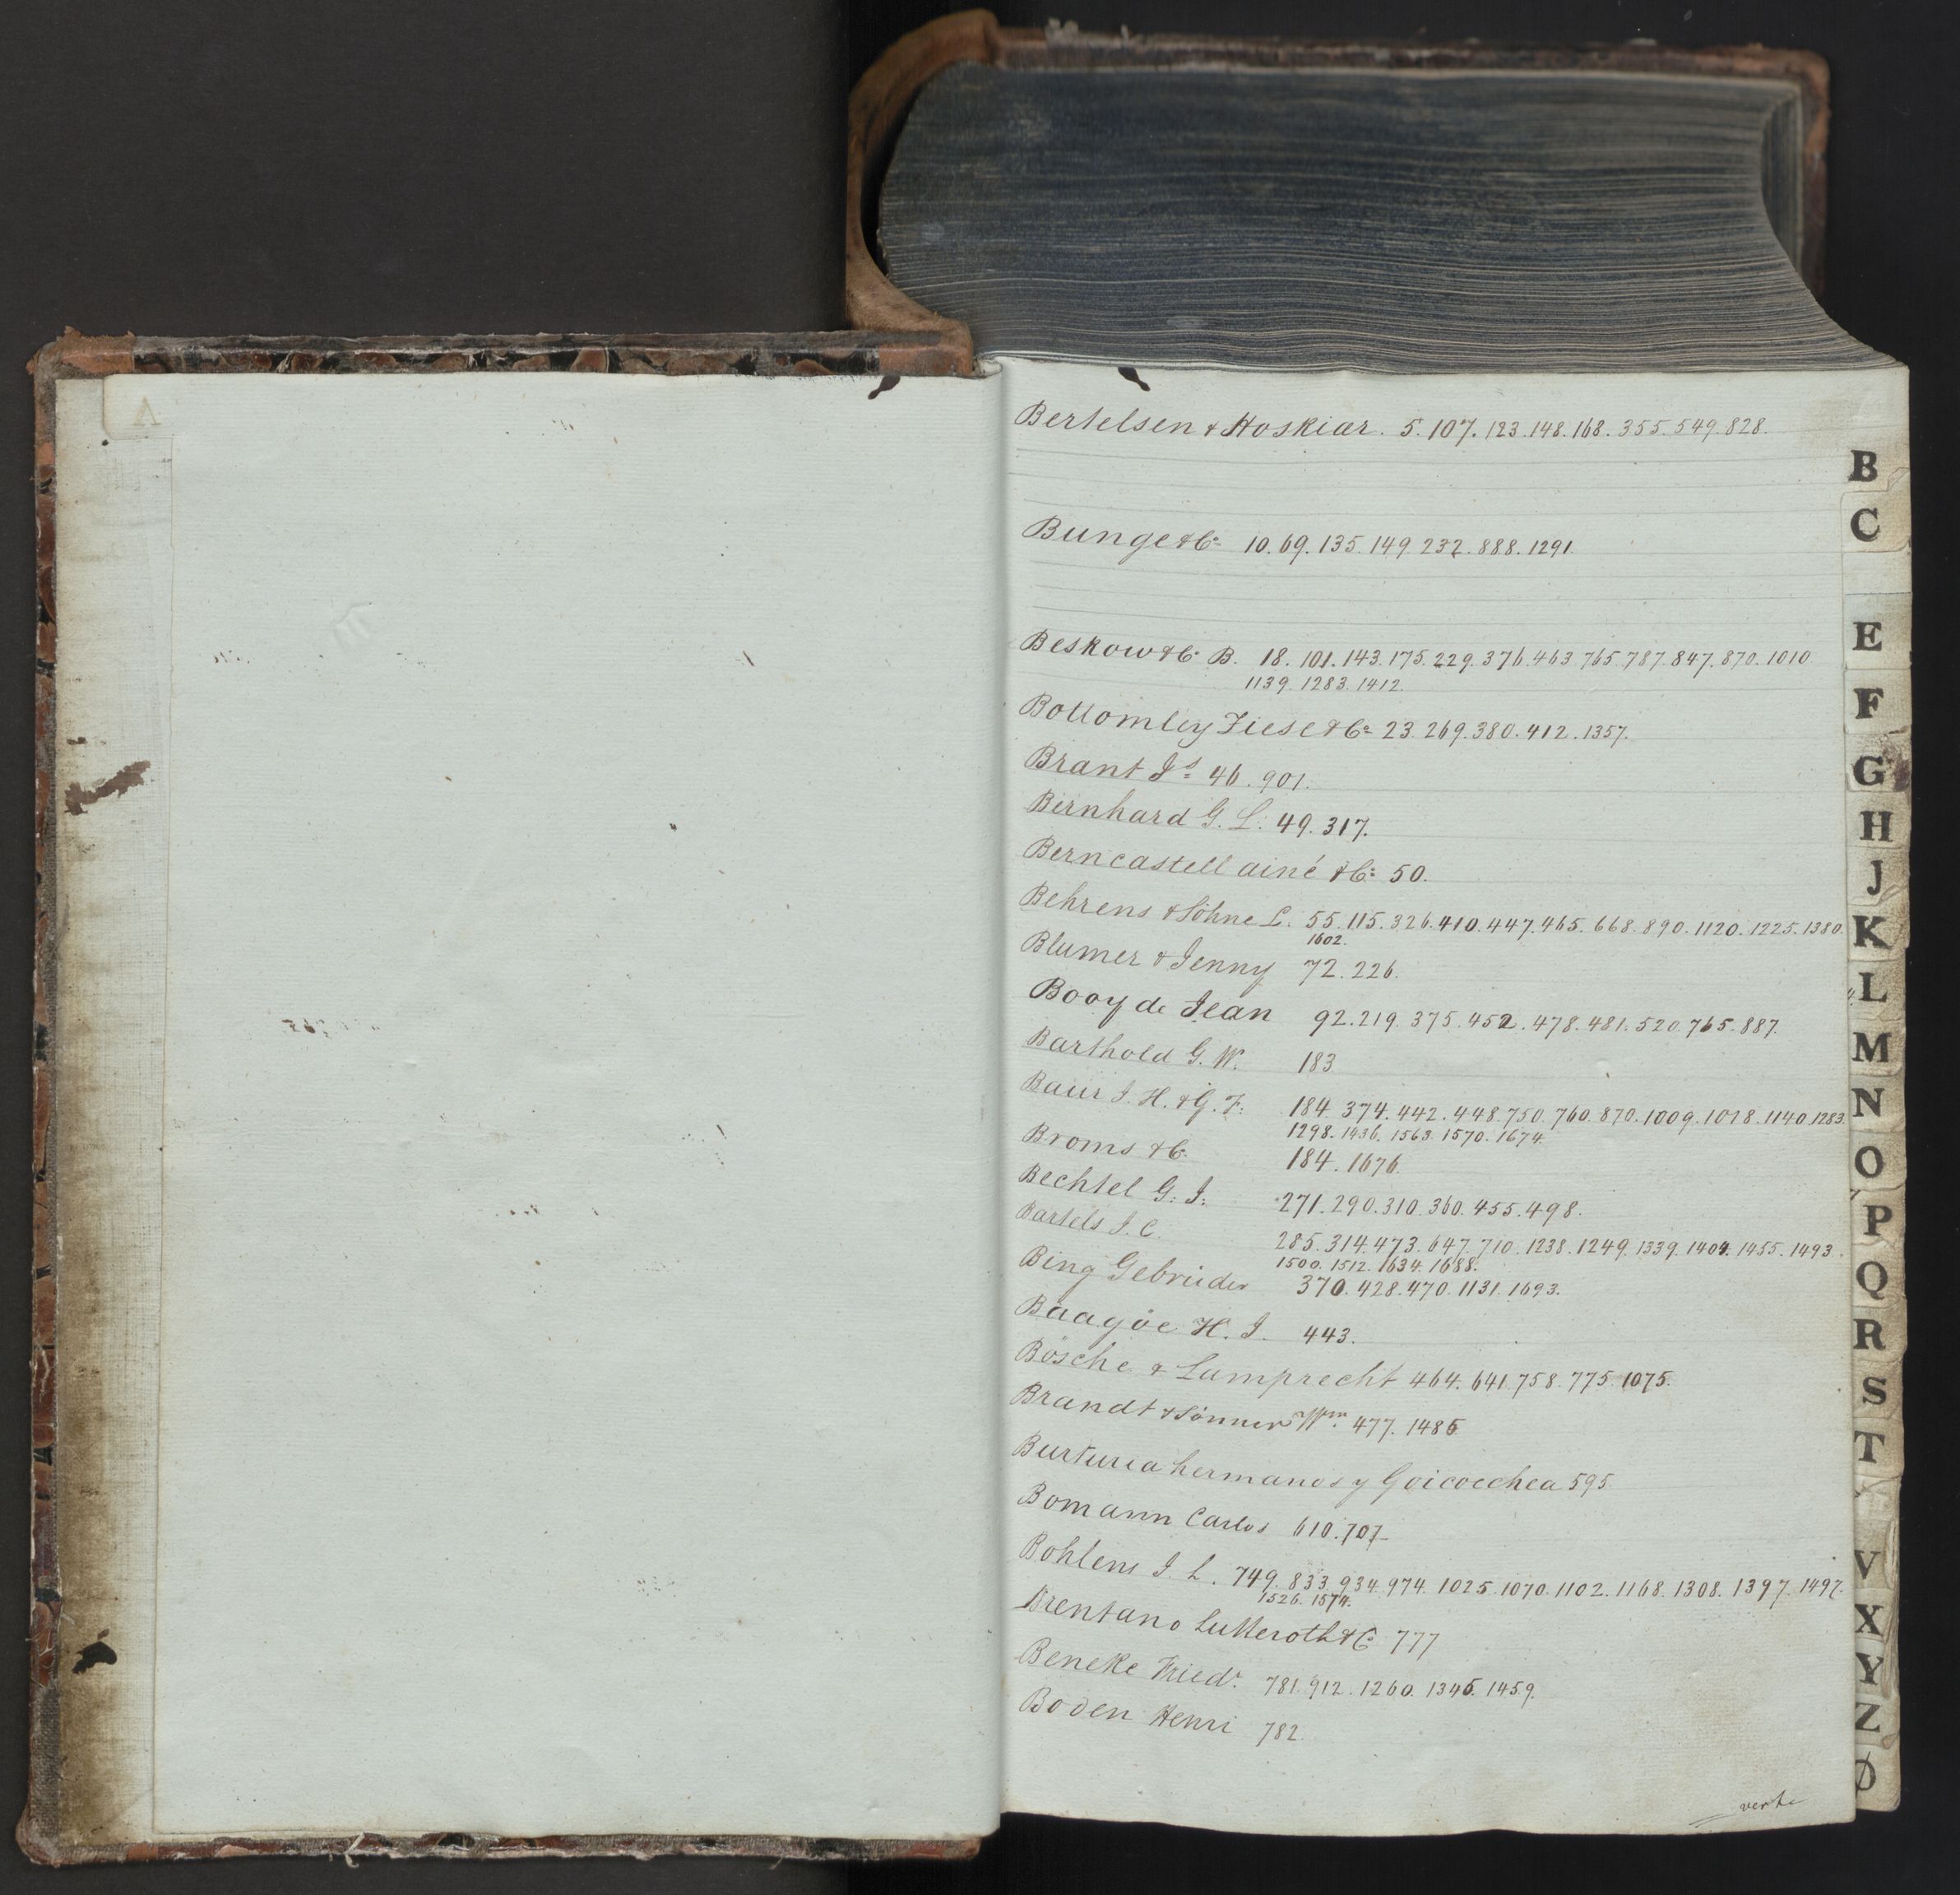 A
Bertelsen & Hoskiar. 5. 107. 123. 148. 168. 355. 549. 828.
Bunge & Co 10. 69. 135. 149. 232. 888. 1291.
Beskow & C. B. 18. 101. 143. 175. 229. 376. 463. 765. 787. 847. 870. 1010
1139. 1283. 1412.
Bottomley Fiese & Co 23. 269. 380. 412. 1357.
Brant Js 46. 901.
Bernhard G. L. 49. 317.
Berncastell ainé & C: 50.
Behrens & Söhne L. 55. 115. 326. 410. 447. 465. 668. 890. 1120. 1225. 1380.
1602.
Blumer & Jenny 72. 226.
Booy de Jean 92. 219. 375. 452. 478. 481. 520. 765. 887.
Barthold G. W. 183
Baur J. H. & G. F. 184. 374. 442. 448. 750. 760. 870. 1009. 1018. 1140. 1283.
1298. 1436. 1563. 1570. 1674.
Broms & C. 184. 1676.
Bechtel G. J. 271. 290. 310. 360. 455. 498.
Bartels J. C. 285. 314. 473. 647. 710. 1238. 1249. 1339. 1404. 1455. 1493.
1500. 1512. 1634. 1688.
Bing Gebrüder 370. 428. 470. 1131. 1693.
Baagöe H. J. 443.
Bösche & Lamprecht 464. 641. 758. 775. 1075.
Brandt & Sönner Wm. 477. 1485
Burturia hermanos y Goicoechea 595.
Bomann Carlos 610. 707
Bohlens J. L. 749. 833. 934. 974. 1025. 1070. 1102. 1168. 1308. 1397. 1497.
1526. 1574.
Brentano Lutteroth & C 777
Beneke Friedr. 781. 912. 1260. 1345. 1459.
Boden Henri 782
verte
B
C
E
F
G
H
J
K
L
M
N
O
P
Q
R
S
T
V
X
Y
Z
Ø